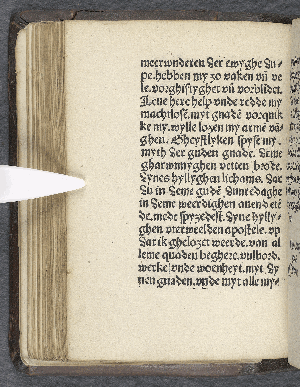 meerwnderen Der ewyghe Du⸗
pe. hebben my zo vaken vñ ve
le. vorghiftyghet vñ vorbildet.
Leue here help vnde redde my
machtlose. myt gnade vorquik
ke my. wylle loven my armē vā
ghen. Gheystlyken spyse my.
myth Der guden gnade. Deme
gharwmnyghen vetten brode.
Dynes hyllyghen lichams. Dat
Du in Deme gudē Dunredaghe
in Deme weerdighen auend etē
de. mede spyzedest. Dyne hylly⸗
ghen vterwelden apostele. vp
Dat ik ghelozet weerde. van al
leme quaden beghere. vulbord.
werke vnde woenheyt. myt Dy
nen gnaden. vnde myt alle my⸗